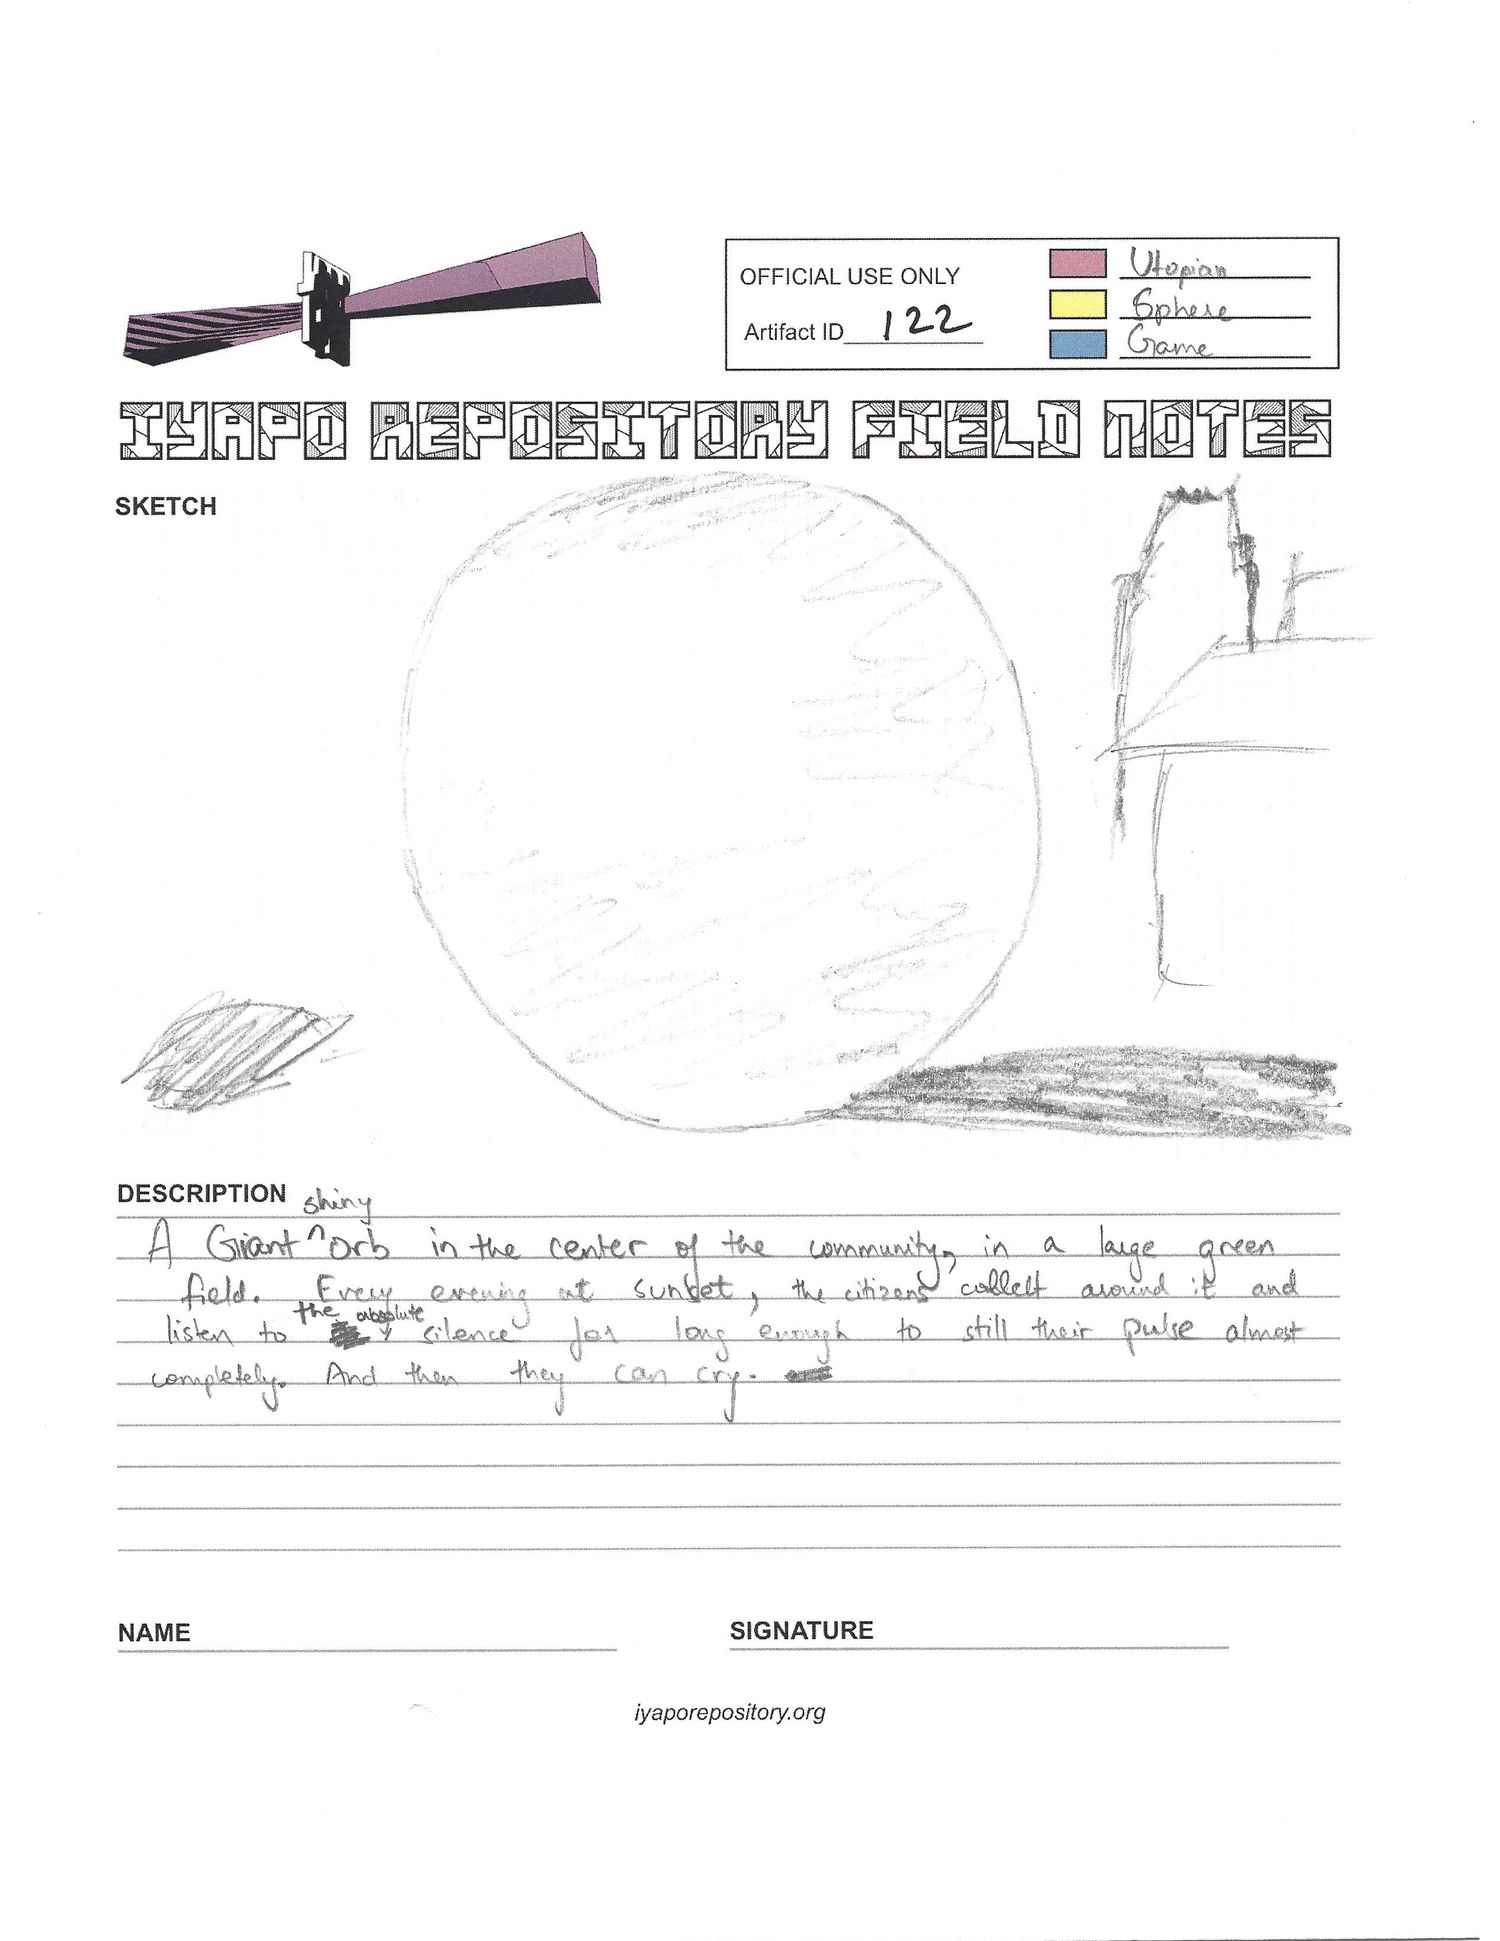 OFFICIAL USE ONLY
Artifact ID 122
Utopian
Sphere
Game
IYAPO REPOSITORY FIELD NOTES
SKETCH
DESCRIPTION
shiny
A Giant ^ orb in the center of the community, in a large green
field. Every evening at sunset, the citizens collect around it and
the absolute
listen to silence for long enough to still their pulse almost
completely. And then they can cry.
NAME
SIGNATURE
iyaporepository.org